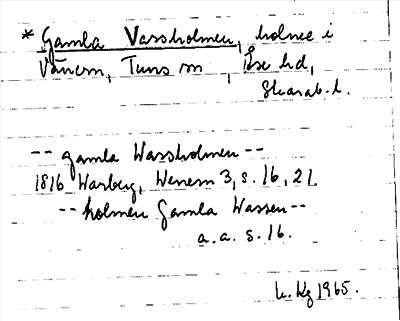 * Gamla Vassholmen, holme i
Vänern, Tuns sn, Åse hd,
Skarab. l.
-- gamla Wassholmen --
1816 Warberg, Wenern 3, s. 16, 21
-- holmen Gamla Wassen --
a. a. s. 16.
1965.